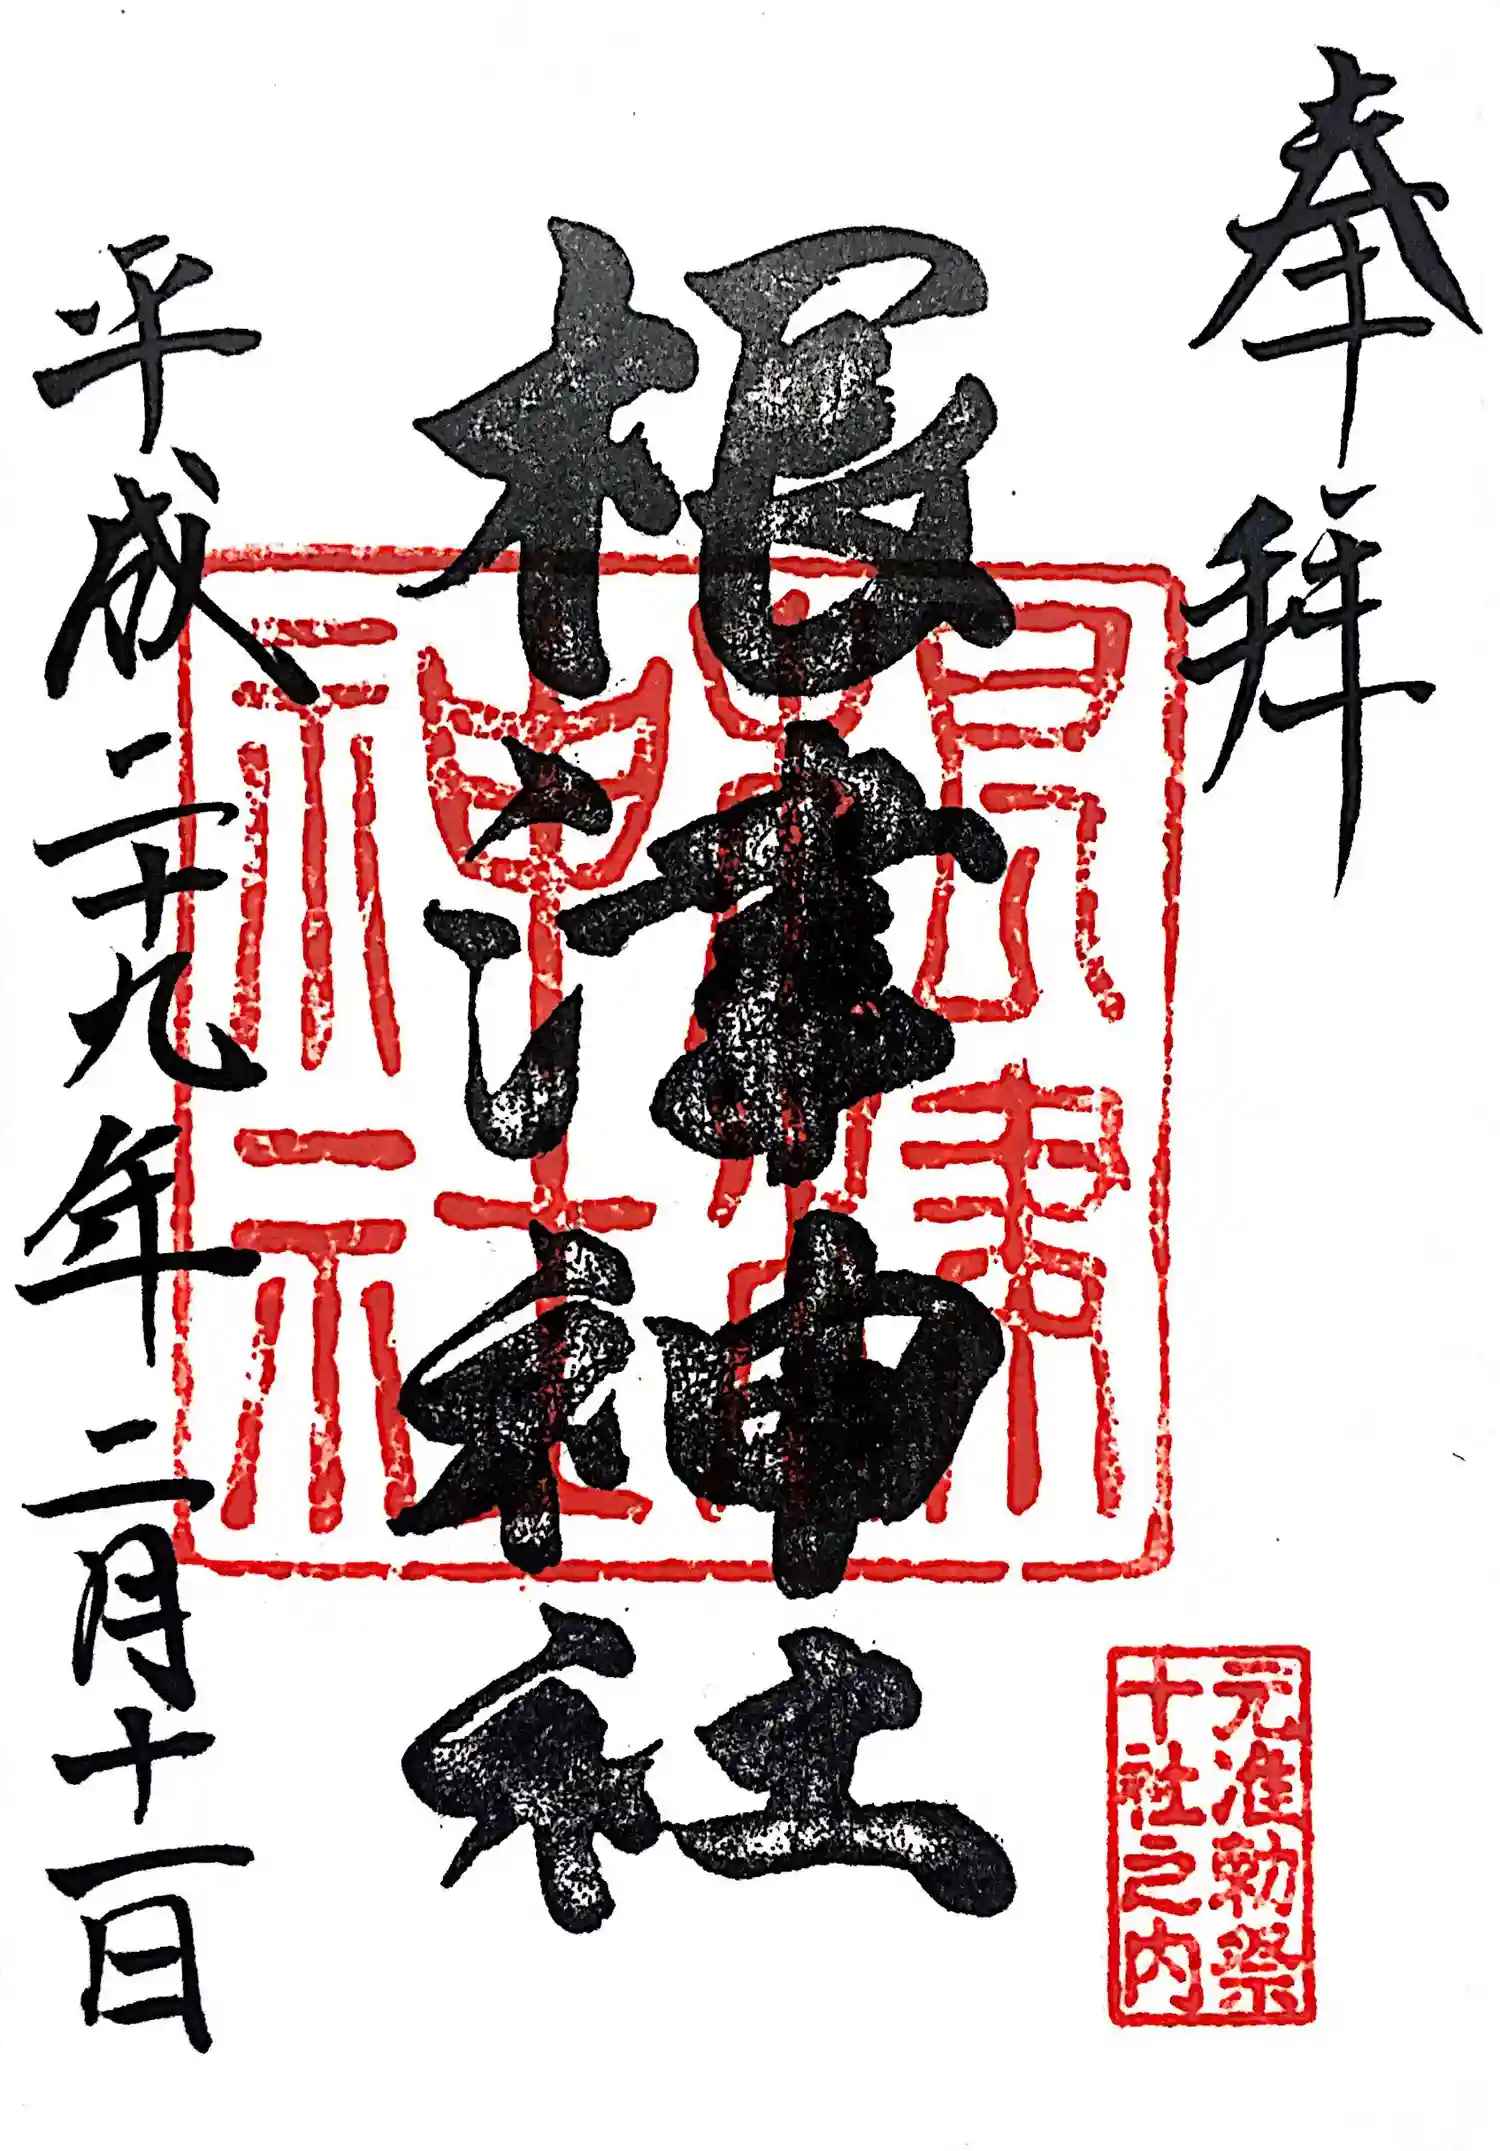 奉拝
元准勅祭
十社之内
根津神社
平成二十九年二月十一日